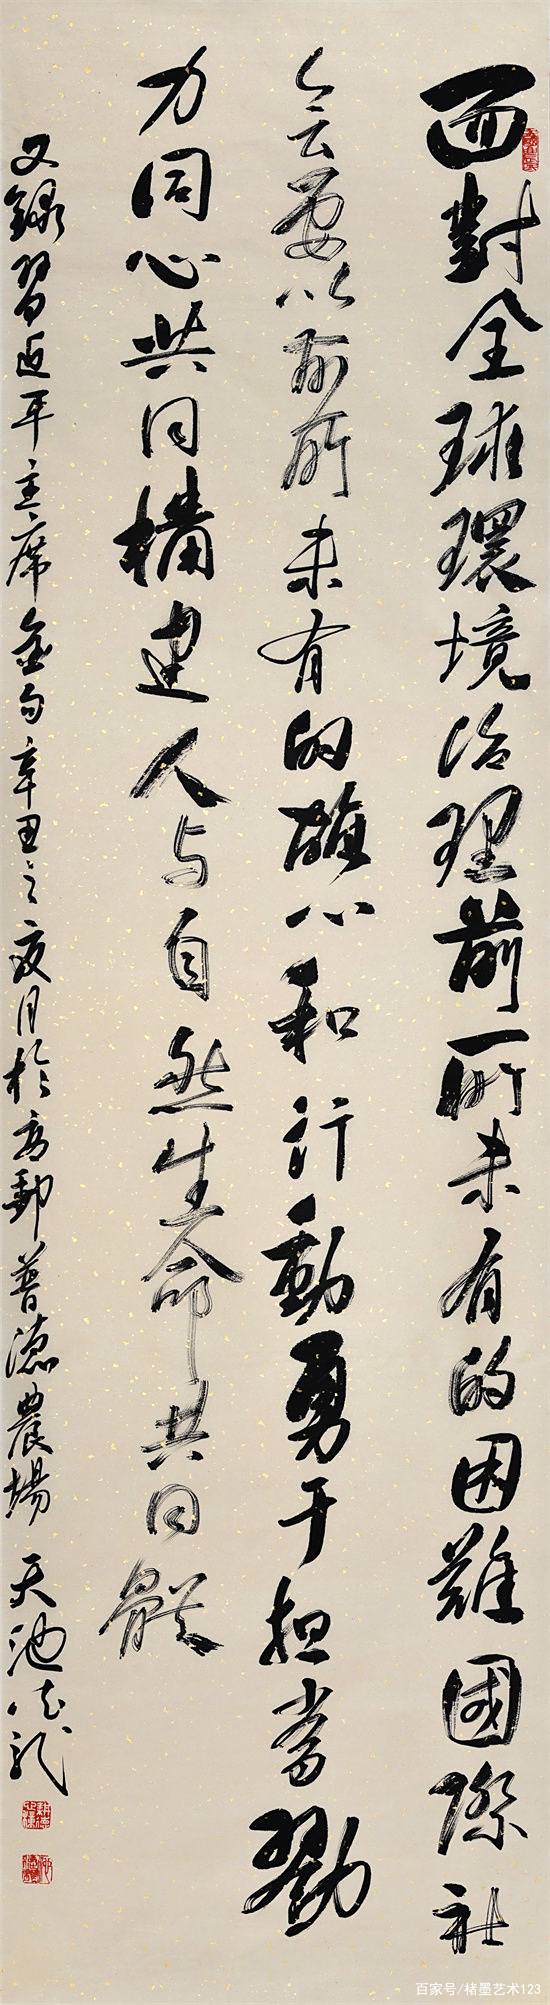 面對全球環境治理前所未有的困難國際社
会要以前所未有的雄心和行動勇于担當勠
力同心共同構建人与自然生命共同體
又錄習近平主席金句辛丑之夏月於 普德農場 天池
百家号/楮墨艺术123